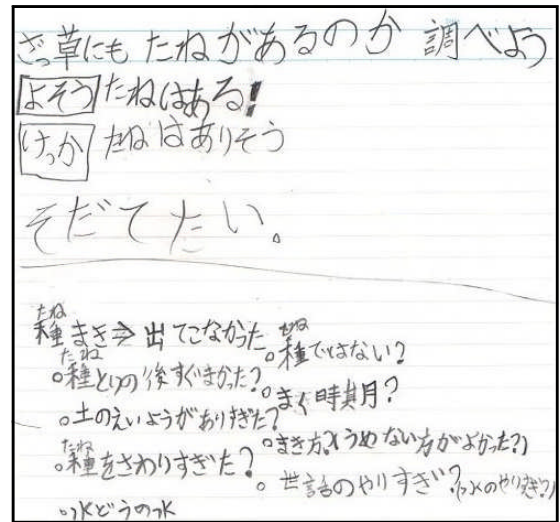 ざっ草にもたねがあるのか 調べよう
よそう たねはある!
けっか たねはありそう
そだてたい。
種まき⇒出てこなかった
たね
。種ではない?
たね
。種とりの後すぐまかった?
たね
。まく時期月?
。土のえいようがありすぎた?
。まき方?(うめない方がよかった?)
。種をさわりすぎた?
たね
。世話のやりすぎ?(水のやりすぎ?)
。水どうの水